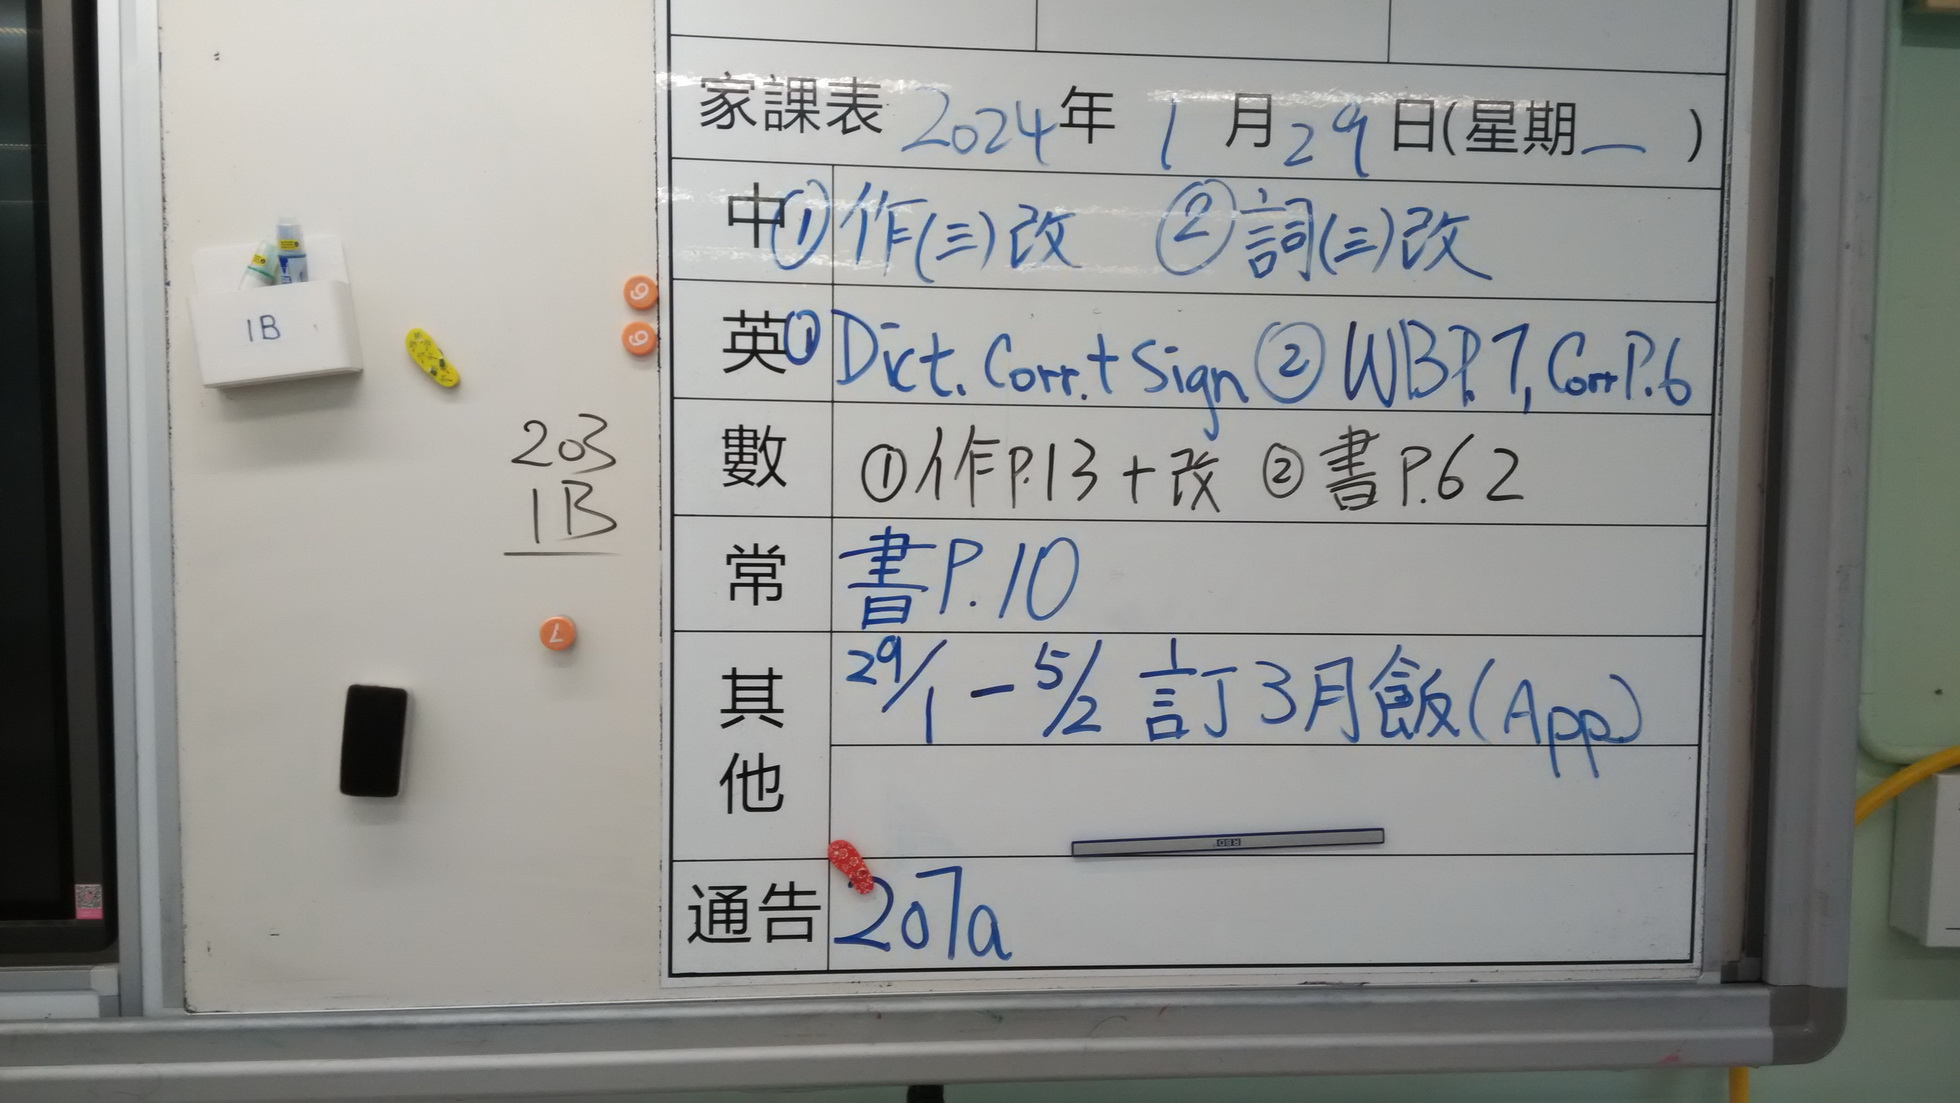 家課表 2024年 1月29日(星期一)
中 ①作(三)改 ②詞(三)改
英 ①Dict. Corr. + Sign ②WB P.7, Corr P.6
數 ①作P.13+改 ②書P.62
常 書P.10
其他 29/1 - 5/2 訂3月飯(App)
通告 207a
1B
203
1B
6
6
7